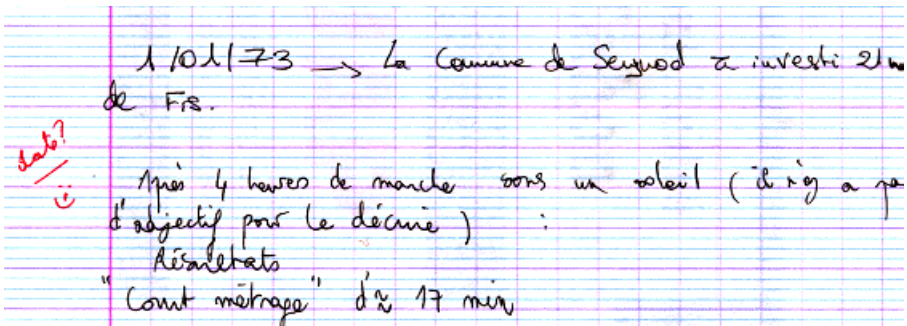 1/01/73 → La Commune de Seynod a investi 21
de Frs.
date?
Après 4 heures de marche sous un soleil (il n'y a pa
d'adjectif pour le décrire) :
Résultats
"Court métrage" d'≈ 17 min